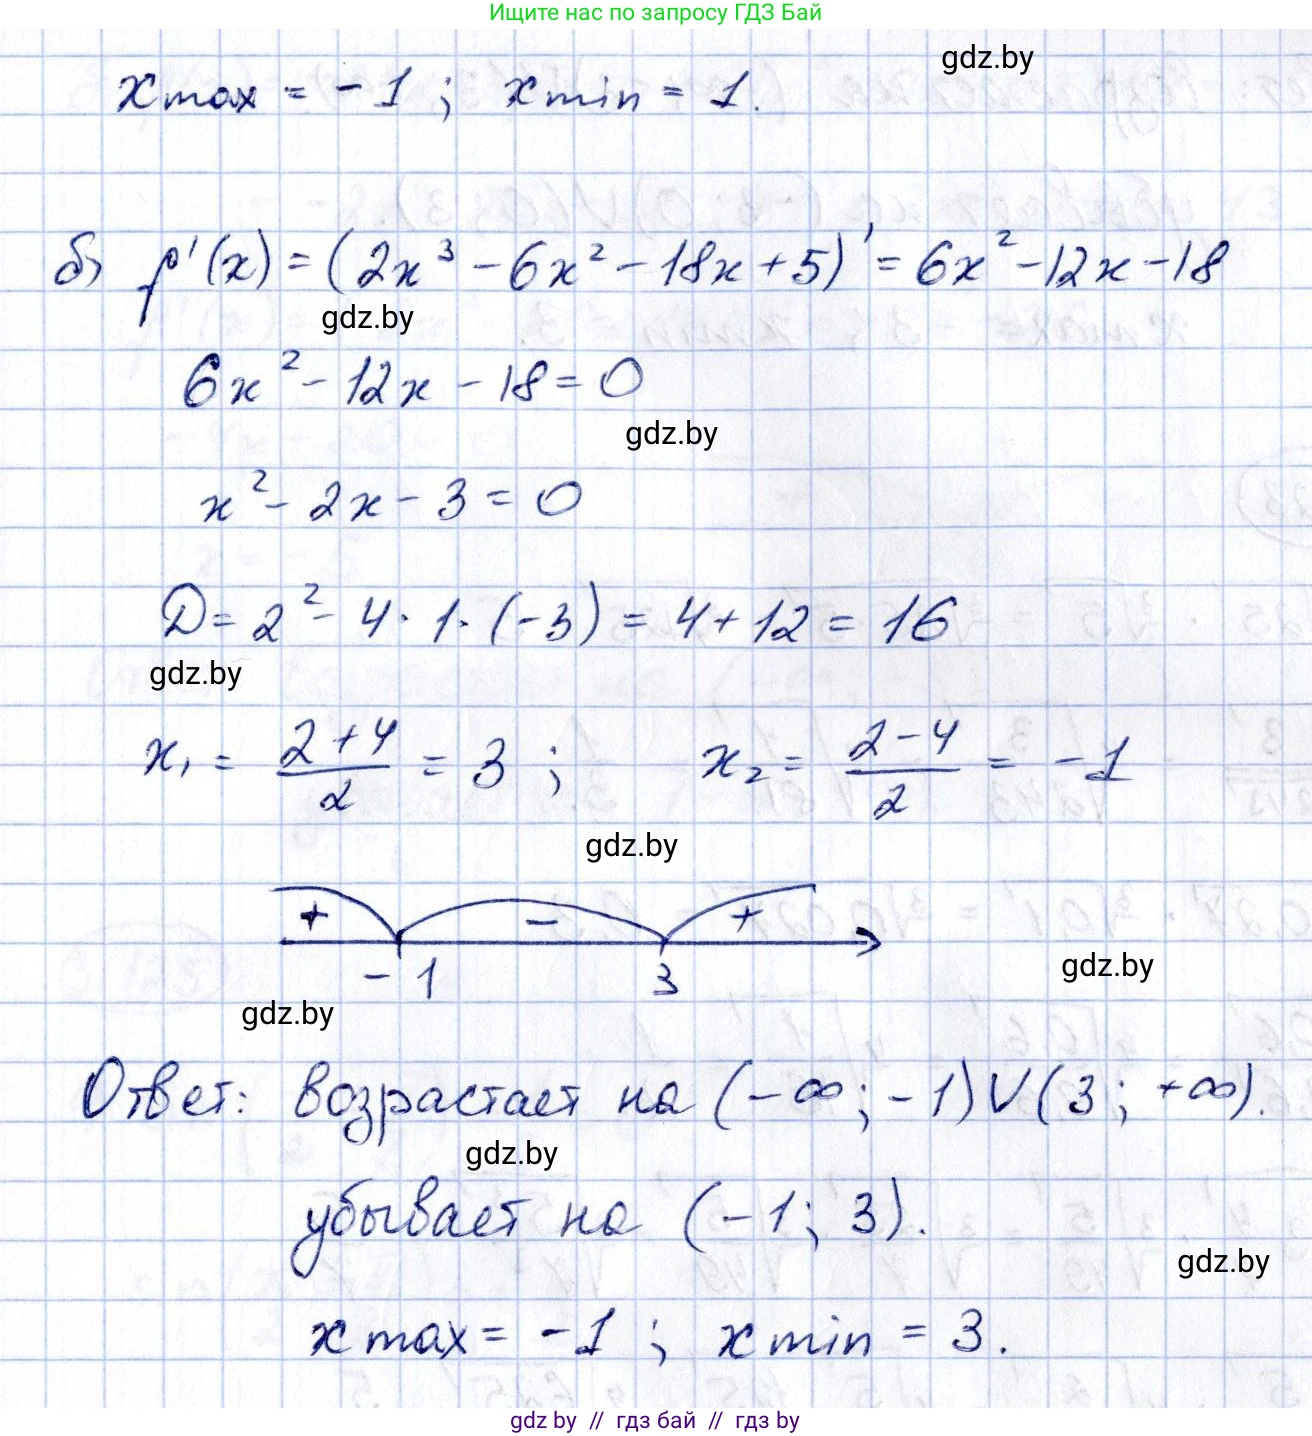 Ищите нас по запросу ГДЗ Бай
gdz.by
x max = -1 ; x min = 1.
б) f'(x) = (2x³ - 6x² - 18x + 5)' = 6x² - 12x - 18
gdz.by
6x² - 12x - 18 = 0
gdz.by
x² - 2x - 3 = 0
D = 2² - 4 · 1 · (-3) = 4 + 12 = 16
gdz.by
x₁ = (2+4)/2 = 3 ; x₂ = (2-4)/2 = -1
gdz.by
+ - +
-1 3
gdz.by
gdz.by
Ответ: возрастает на (-∞; -1) ∪ (3; +∞).
gdz.by
убывает на (-1; 3).
gdz.by
x max = -1 ; x min = 3.
gdz by // гдз бай // гдз by